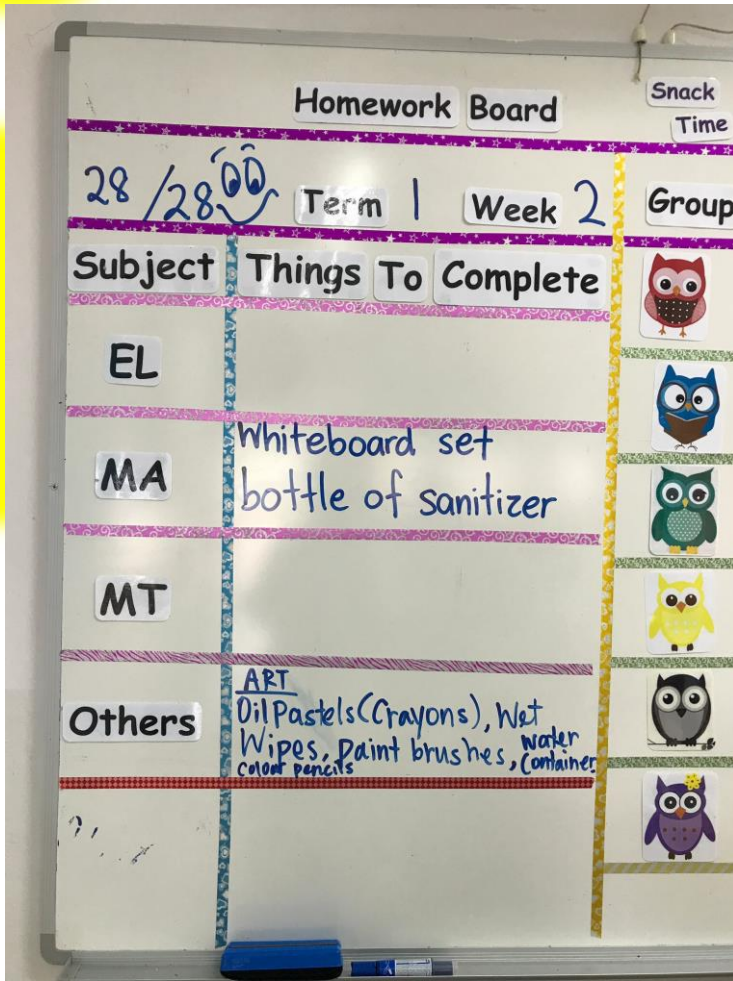 Homework Board
Snack
Time
28/28 Term 1 Week 2
Group
Subject Things To Complete
EL
MA
Whiteboard set
bottle of sanitizer
MT
Others
ART
Oil Pastels (Crayons), Wet
Wipes, paint brushes, water container,
colour pencils